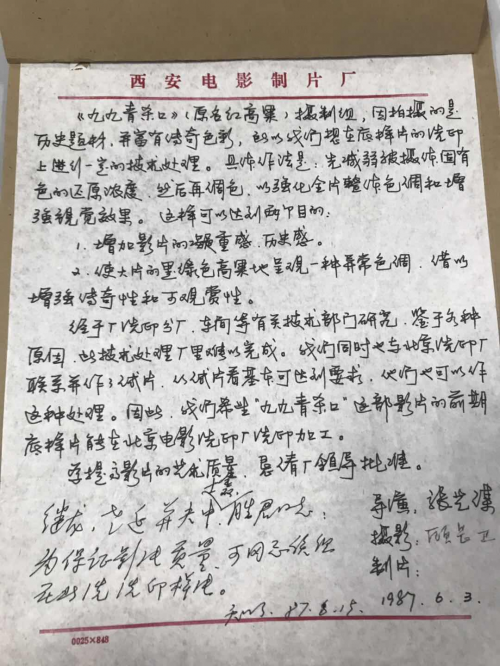 西安电影制片厂
《九九青杀口》(原名红高粱)摄制组,因拍摄的是
历史题材,并富有传奇色彩,所以我们想在底样片的洗印
上进行一定的技术处理。具体作法是:先减弱被摄体固有
色的还原浓度,然后再调色,以强化全片整体色调和增
强视觉效果。这样可以达到两个目的:
1.增加影片的凝重感、历史感。
2.使大片的墨绿色高粱地呈现一种异常色调,借以
增强传奇性和可观赏性。
经于厂洗印分厂,车间等有关技术部门研究,鉴于各种
原因,此技术处理厂里难以完成。我们同时也与北京洗印厂
联系并作了试片,从试片看基本可达到要求,他们也可以作
这种处理。因此,我们希望"九九青杀口"这部影片的前期
底样片能在北京电影洗印厂洗印加工。
为提高影片的艺术质量,恳请厂领导批准。
导演:张艺谋
摄影:顾长卫
制片:
1987.6.3.
为保证影片质量,可同意
在北洗洗印样片。
87.6.15.
0025×848